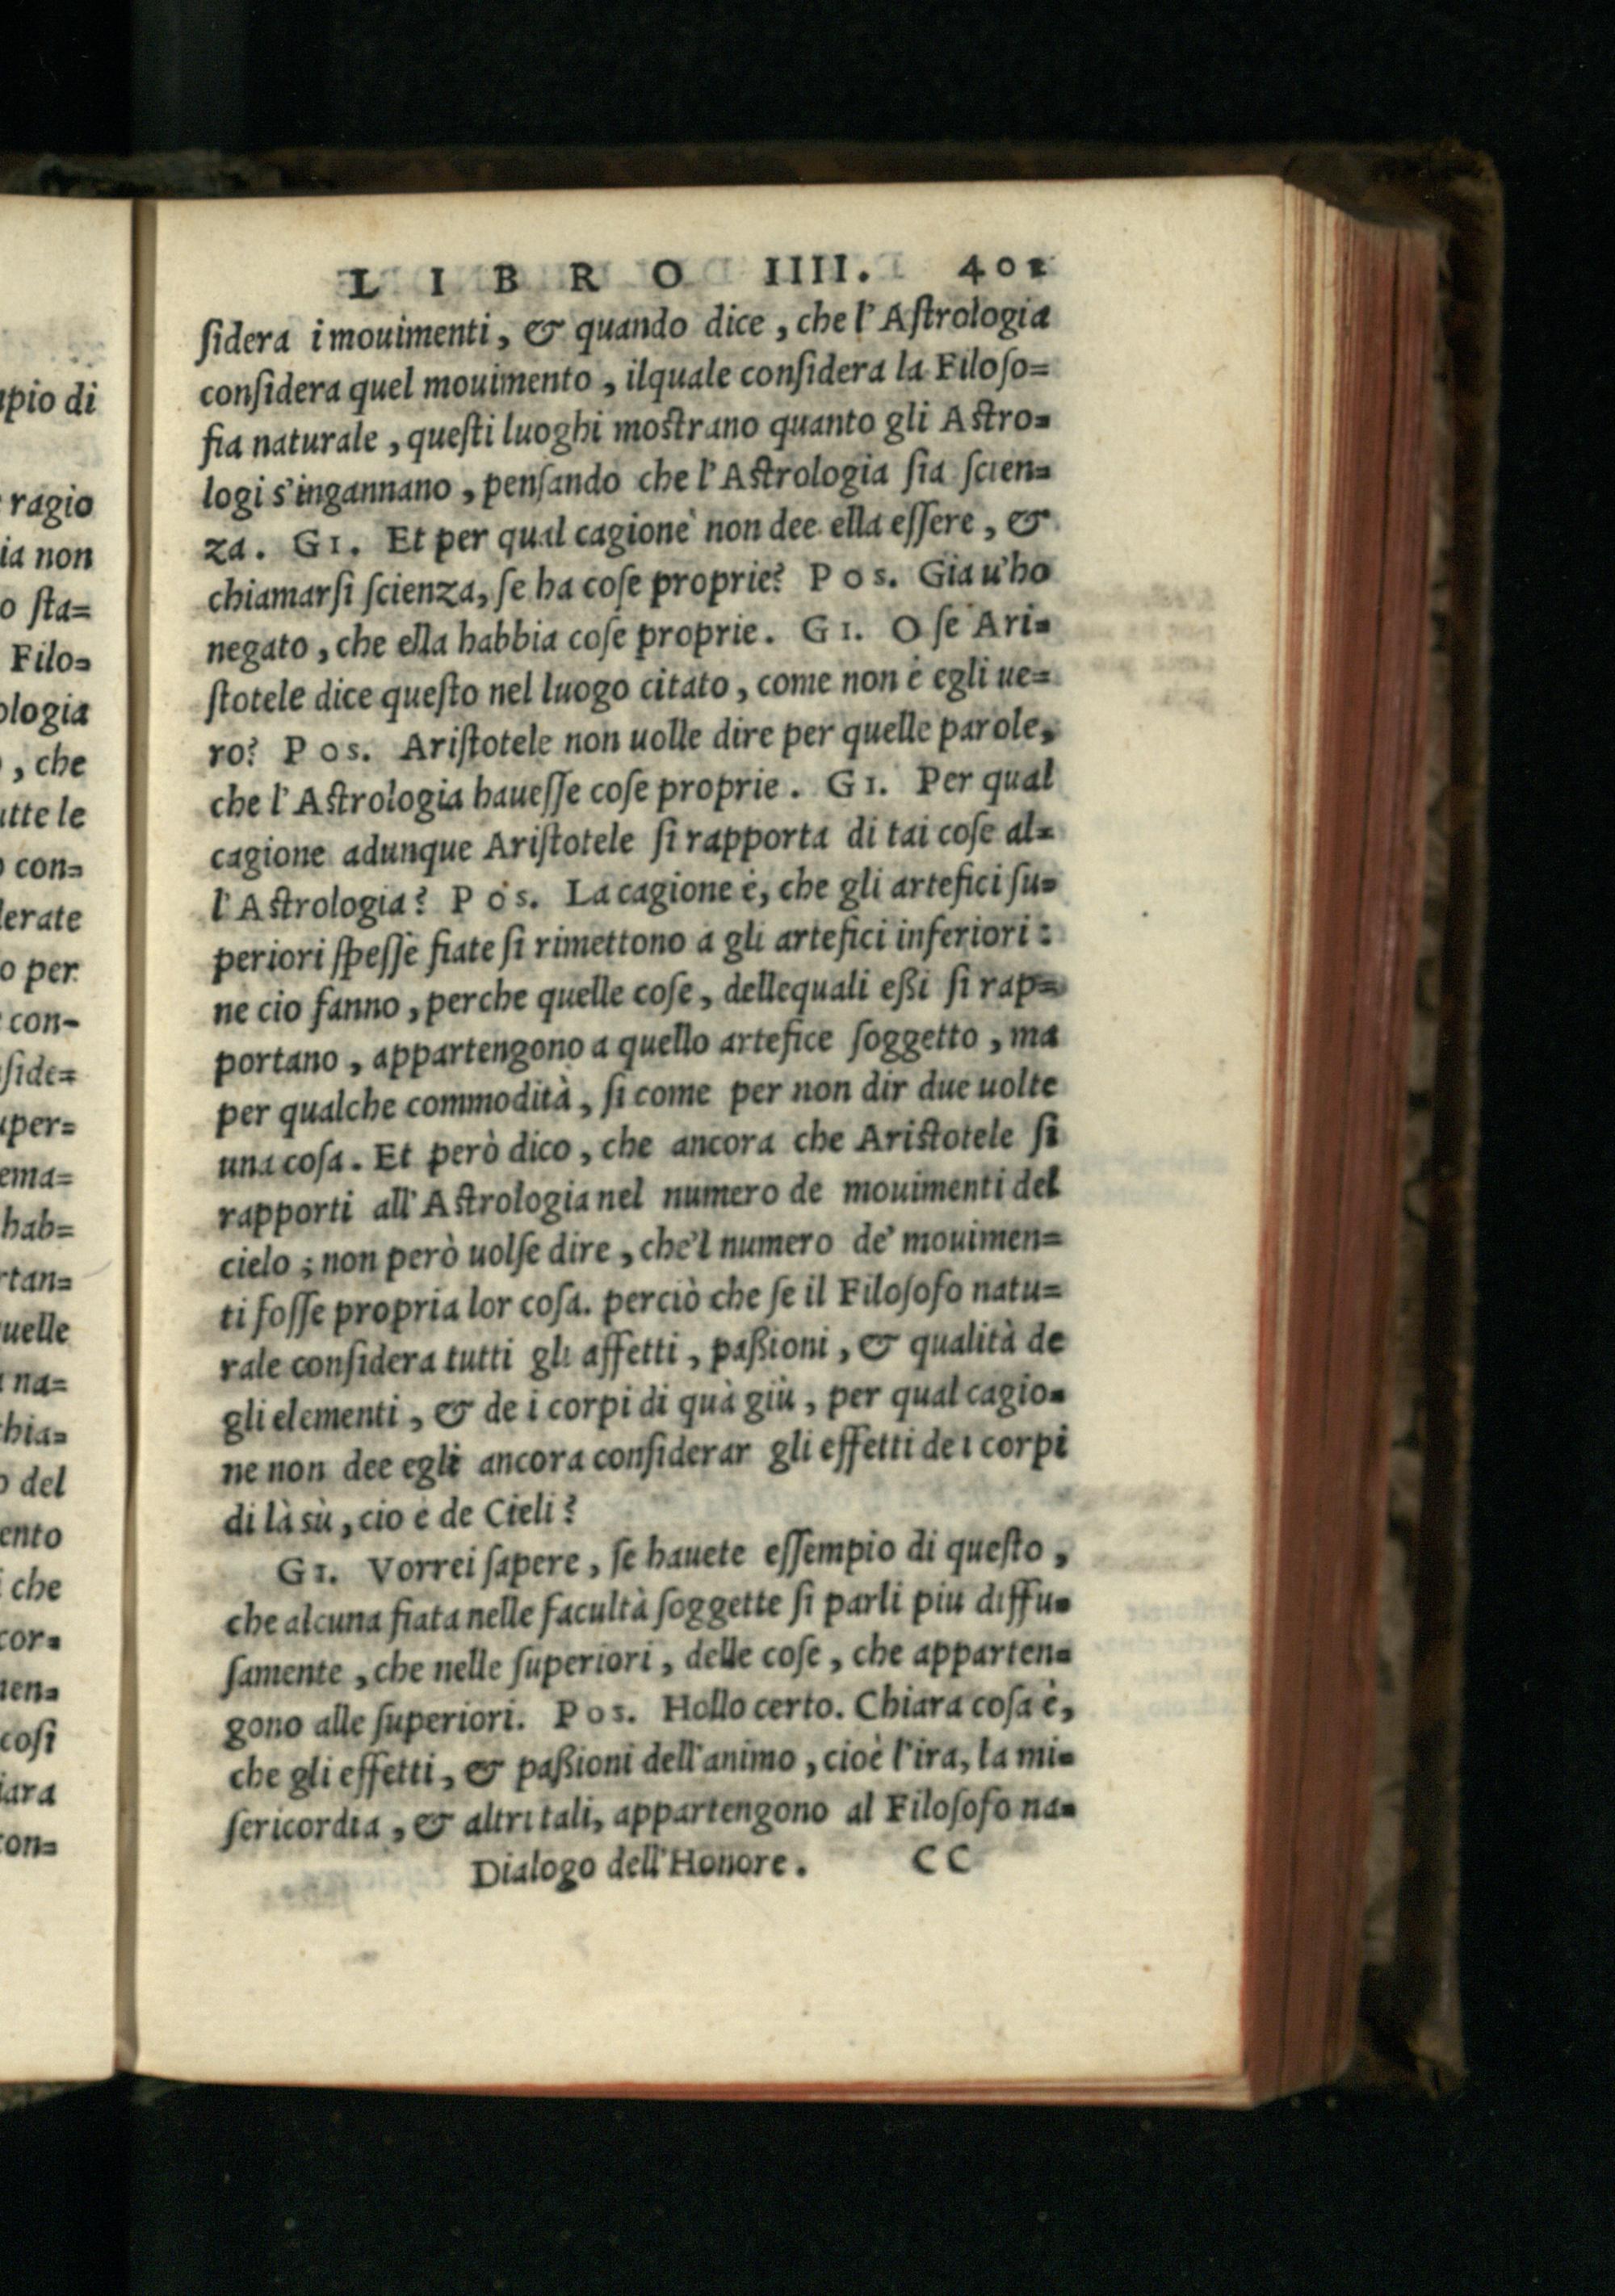 LIBRO IIII. 401
ſidera i mouimenti, & quando dice, che l'Aſtrologia
conſidera quel mouimento, ilquale conſidera la Filoſo=
fia naturale, queſti luoghi moſtrano quanto gli Aſtro=
logi s'ingannano, penſando che l'Aſtrologia ſia ſcien=
za. GI. Et per qual cagione non dee ella eſſere, &
chiamarſi ſcienza, ſe ha coſe proprie? POS. Gia u'ho
negato, che ella habbia coſe proprie. GI. O ſe Ari=
ſtotele dice queſto nel luogo citato, come non è egli ue=
ro? POS. Ariſtotele non uolle dire per quelle parole,
che l'Aſtrologia haueſſe coſe proprie. GI. Per qual
cagione adunque Ariſtotele ſi rapporta di tai coſe al=
l'Aſtrologia? POS. La cagione è, che gli artefici ſu=
periori ſpeſſe fiate ſi rimettono a gli artefici inferiori:
ne cio fanno, perche quelle coſe, dellequali eßi ſi rap=
portano, appartengono a quello artefice ſoggetto, ma
per qualche commodità, ſi come per non dir due uolte
una coſa. Et però dico, che ancora che Ariſtotele ſi
rapporti all'Aſtrologia nel numero de mouimenti del
cielo; non però uolſe dire, che'l numero de' mouimen=
ti foſſe propria lor coſa. perciò che ſe il Filoſofo natu=
rale conſidera tutti gli affetti, paßioni, & qualità de
gli elementi, & de i corpi di quà giù, per qual cagio=
ne non dee egli ancora conſiderar gli effetti de i corpi
di là sù, cio è de Cieli?
GI. Vorrei ſapere, ſe hauete eſſempio di queſto,
che alcuna fiata nelle facultà ſoggette ſi parli piu diffu=
ſamente, che nelle ſuperiori, delle coſe, che apparten=
gono alle ſuperiori. POS. Hollo certo. Chiara coſa è,
che gli effetti, & paßioni dell'animo, cioè l'ira, la mi=
ſericordia, & altri tali, appartengono al Filoſofo na=
Dialogo dell'Honore. CC